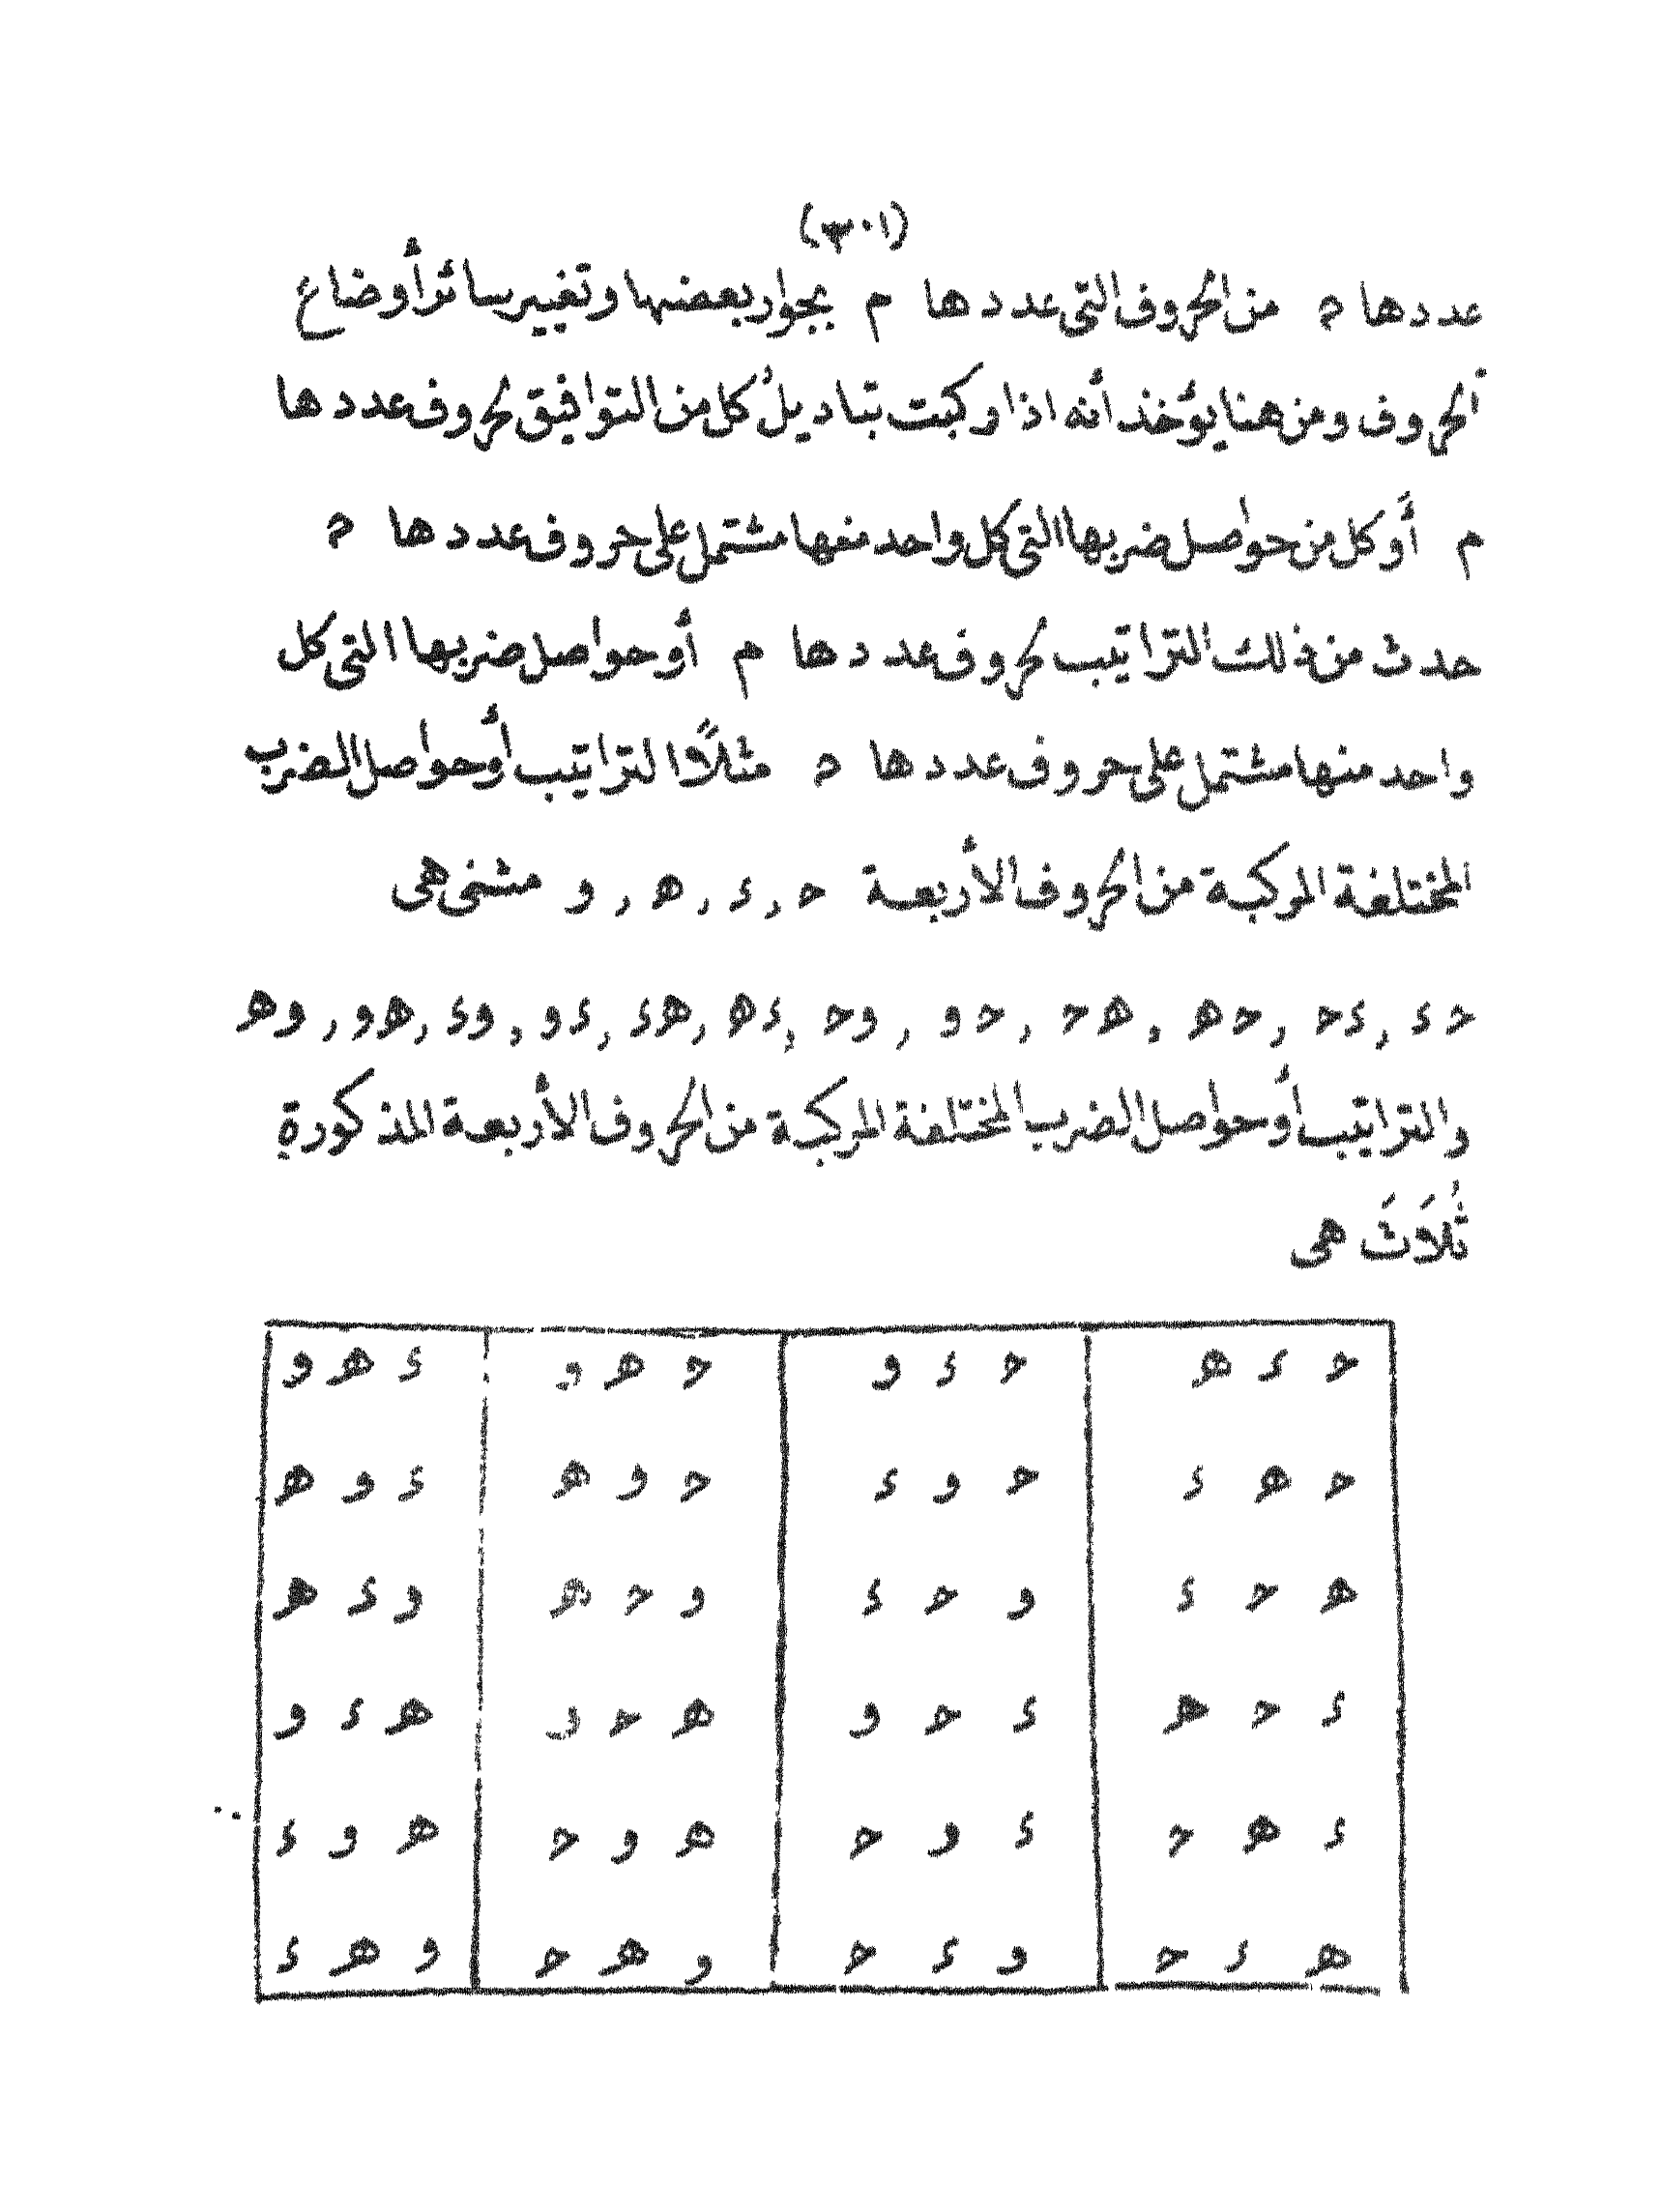 (٣٠١)
عددها ﺩ من الحروف التى عددها م بجوار بعضها وتغيير سائر أوضاع
الحروف ومن هنا يؤخذ أنه اذا وكبت تباديل كل من التوافيق لحروف عددها
م أو كل من حواصل ضربها التى كل واحد منها مشتمل على حروف عددها ﺩ
حدث من ذلك التراتيب لحروف عددها م أو حواصل ضربها التى كل
واحد منها مشتمل على حروف عددها ﺩ مثلًا التراتيب أو حواصل الضرب
المختلفة المركبة من الحروف الأربعة ح , ء , ه , و مثنى هى
ح ء , ء ح , ح ه , ه ح , ح و , و ح , ء ه , ه ء , ء و , و ء , ه و , و ه
والتراتيب أو حواصل الضرب المختلفة المركبة من الحروف الأربعة المذكورة
ثُلَاثَ هى
ح ء ه ح ء و ح ه و ء ه و
ح ه ء ح و ء ح و ه ء و ه
ه ح ء و ح ء و ح ه و ء ه
ء ح ه ء ح و ه ح و ه ء و
ء ه ح ء و ح ه و ح ه و ء
ه ء ح و ء ح و ه ح و ه ء